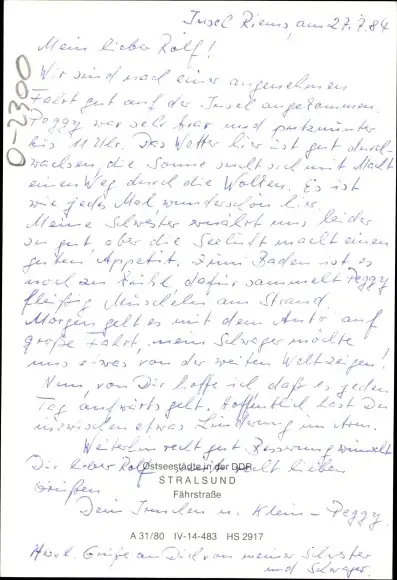 Insel Riems, am 27.7.84
Mein lieber Rolf!
0-2300
Wir sind nach einer angenehmen
Fahrt gut auf der Insel angekommen.
Peggy war sehr brav und putzmunter
bis 11 Uhr. Das Wetter hier ist gut durch-
wachsen, die Sonne sucht sich mit Macht
einen Weg durch die Wolken. Es ist
wie jedes Mal, wunderschön hier.
Meine Schwester ernährt uns leider
zu gut, aber die Seeluft macht einen
guten Appetit. Zum Baden ist es
noch zu kühl, dafür sammelt Peggy
fleißig Muscheln am Strand.
Morgen geht es mit dem Auto auf
große Fahrt, mein Schwager möchte
uns etwas von der weiten Welt zeigen!
Nun, von Dir hoffe ich daß es jeden
Tag aufwärts geht. Hoffentlich hast Du
inzwischen etwas Linderung im Arm.
Weiterhin recht gut Besserung wünscht
Dir lieber Rolf recht lieben
Grüßen
Ostseestädte in der DDR
STRALSUND
Fährstraße
Dein u. Klein-Peggy.
A 31/80 IV-14-483 HS 2917
Herzl. Grüße an Dich von meiner Schwester
und Schwager.